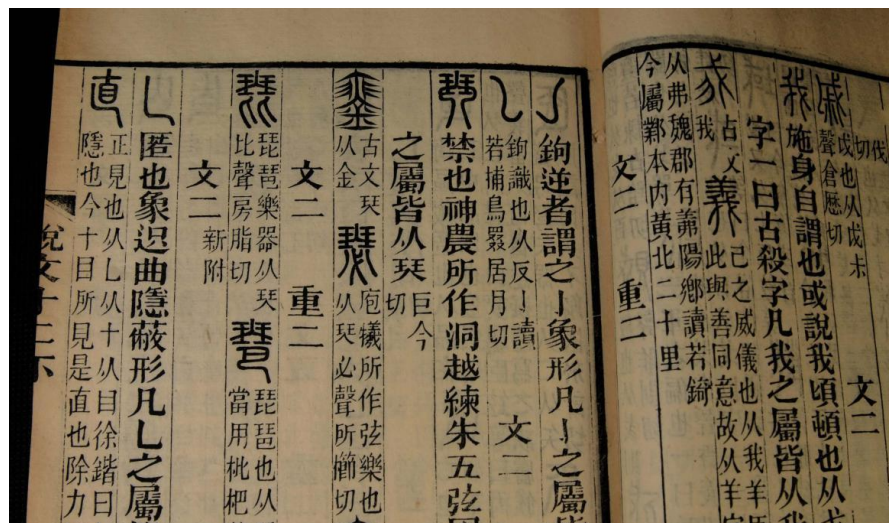 伐
切
文二
戚 戉也从戉尗
聲倉歷切
我 施身自謂也或說我頃頓也从戈
字一曰古殺字凡我之屬皆从我
古文
我
義 己之威儀也从我羊
此與善同意故从羊
从弗魏郡有羛陽鄉讀若錡
今屬鄴本内黃北二十里
文二 重二
亅 鉤逆者謂之亅象形凡亅之屬
𠄌 鉤識也从反亅讀
若捕鳥罬居月切
文二
珡 禁也神農所作洞越練朱五弦
之屬皆从珡 巨今
切
古文珡
从金
瑟 庖犧所作弦樂也
从珡必聲所櫛切
文二 重二
琵 琵琶樂器从珡
比聲房脂切
琶 琵琶也从
當用枇杷
文二 新附
乚 匿也象迟曲隱蔽形凡乚之屬
直 正見也从乚从十从目徐鍇曰
隱也今十目所見是直也除力
說文十二下